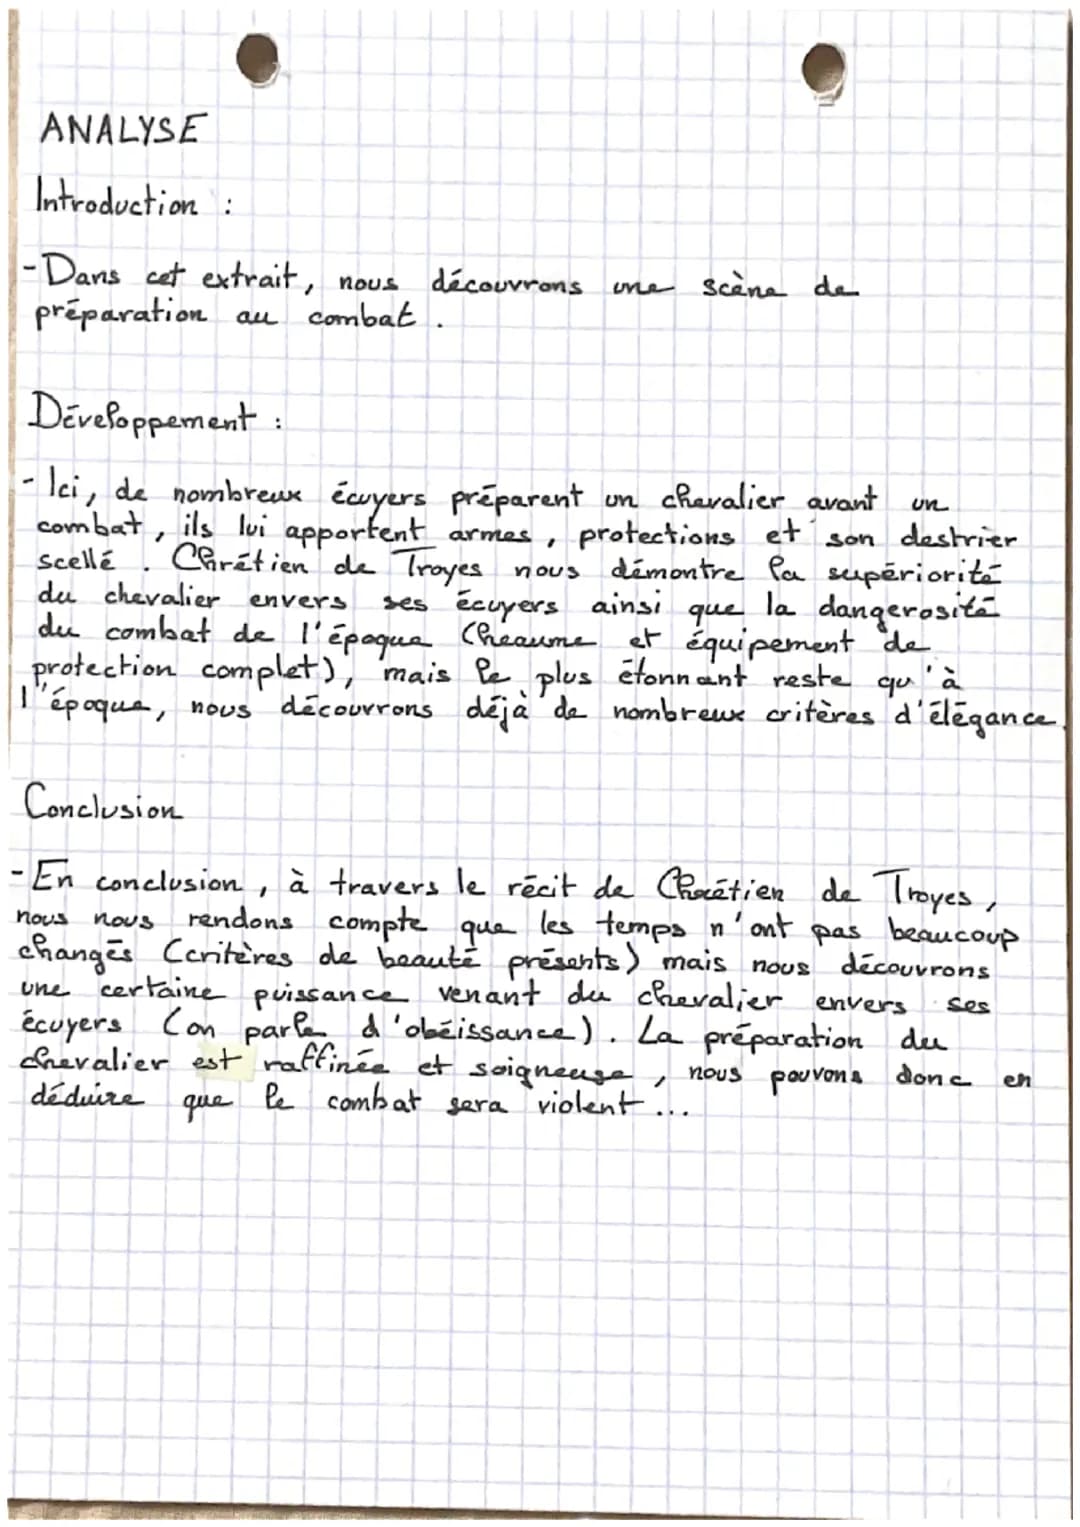 ANALYSE
Introduction :
- Dans cet extrait, nous découvrons une scène de
préparation au combat.
Développement :
- Ici, de nombreux écuyers préparent un chevalier avant un
combat, ils lui apportent armes, protections et son destrier
scellé. Chrétien de Troyes nous démontre la supériorité
du chevalier envers ses écuyers ainsi que la dangerosité
du combat de l'époque (heaume et équipement de
protection complet), mais le plus étonnant reste qu'à
l'époque, nous découvrons déjà de nombreux critères d'élégance.
Conclusion
- En conclusion, à travers le récit de Chrétien de Troyes,
nous nous rendons compte que les temps n'ont pas beaucoup
changés (critères de beauté présents) mais nous découvrons
une certaine puissance venant du chevalier envers ses
écuyers (on parle d'obéissance). La préparation du
chevalier est raffinée et soigneuse, nous pouvons donc en
déduire que le combat sera violent...